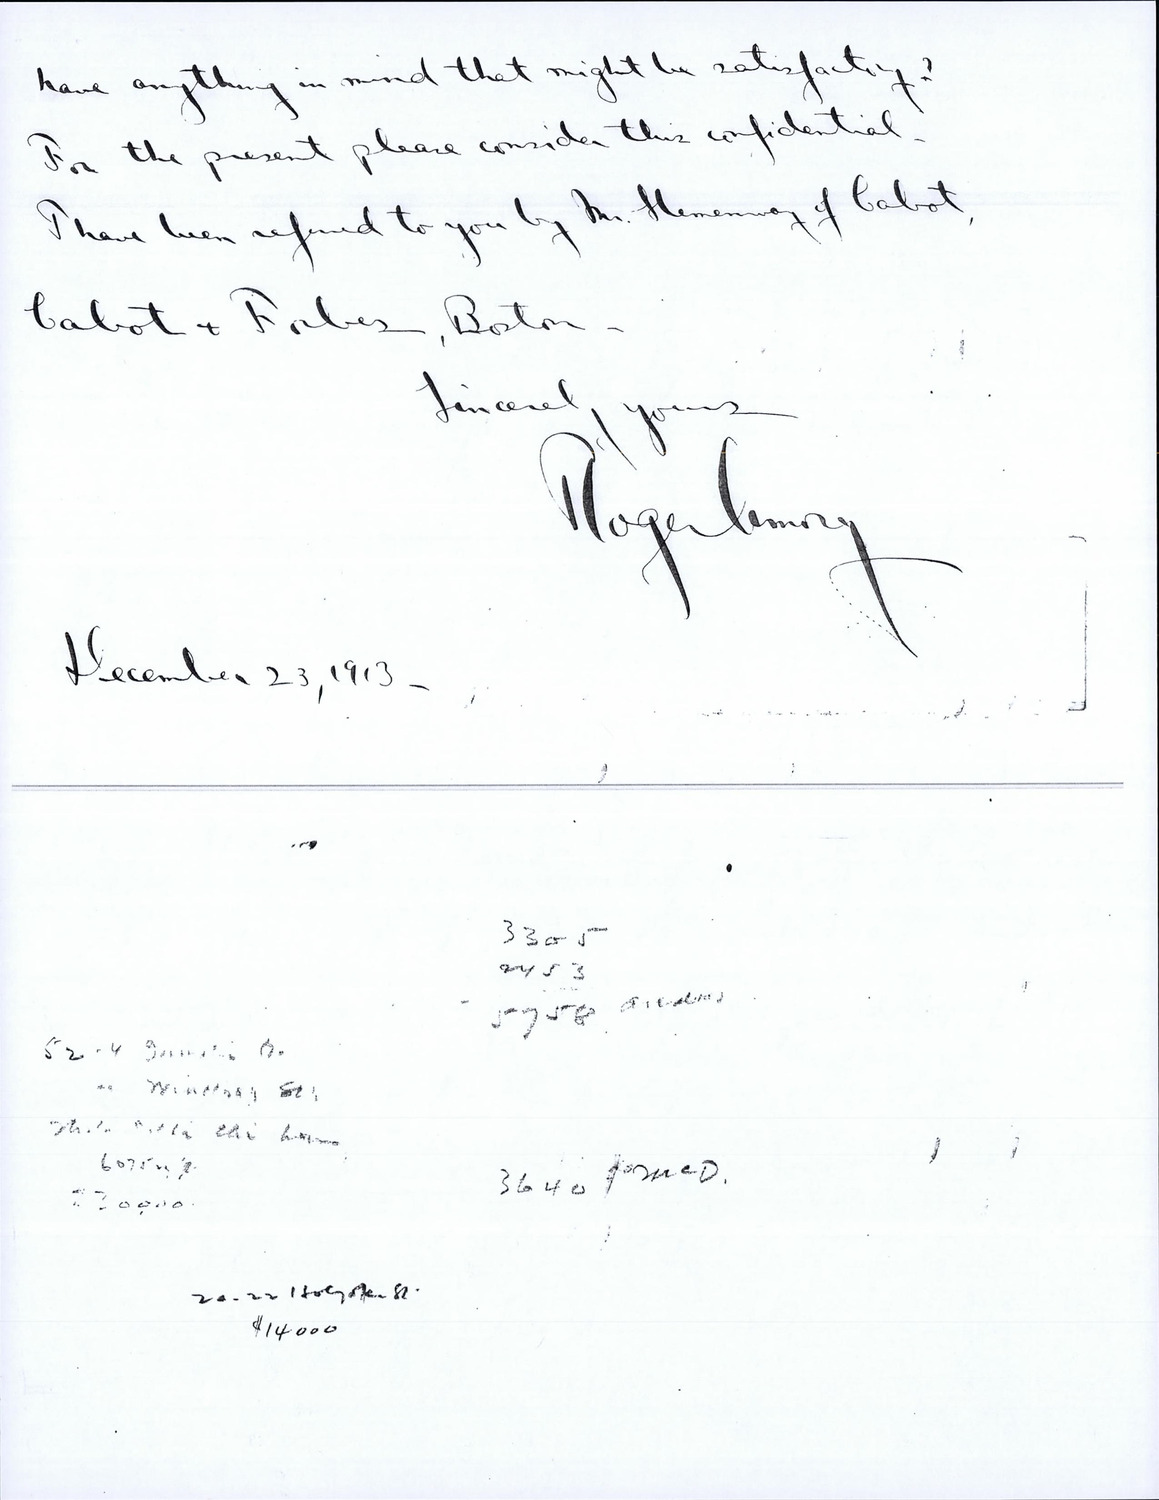 have anything in mind that might be satisfactory?
For the present please consider this confidential -
I have been referred to you by Mr. Hemenway of Cabot,
Cabot + Forbes, Boston -
Sincerely yours
Roger Amory
December 23, 1913 -
3305
2453
5758
52-4
6075
3640
20-22 Holyoke St.
$14000